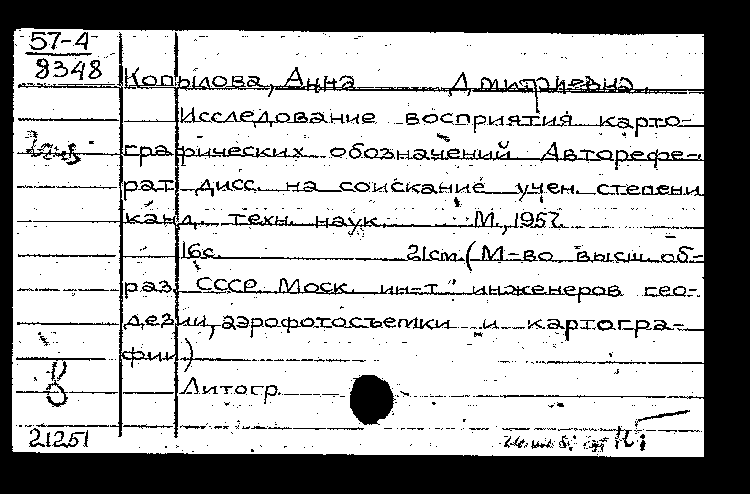 57-4
8348
Копылова, Анна Дмитриевна.
Исследование восприятия карто-
графических обозначений Авторефе-
рат дисс. на соискание учен. степени
канд. техн. наук. М., 1957.
16с. 21см. (М-во высш. об-
раз. СССР. Моск. ин-т инженеров гео-
дезии, аэрофотосъемки и картогра-
фии)
Литогр.
21251